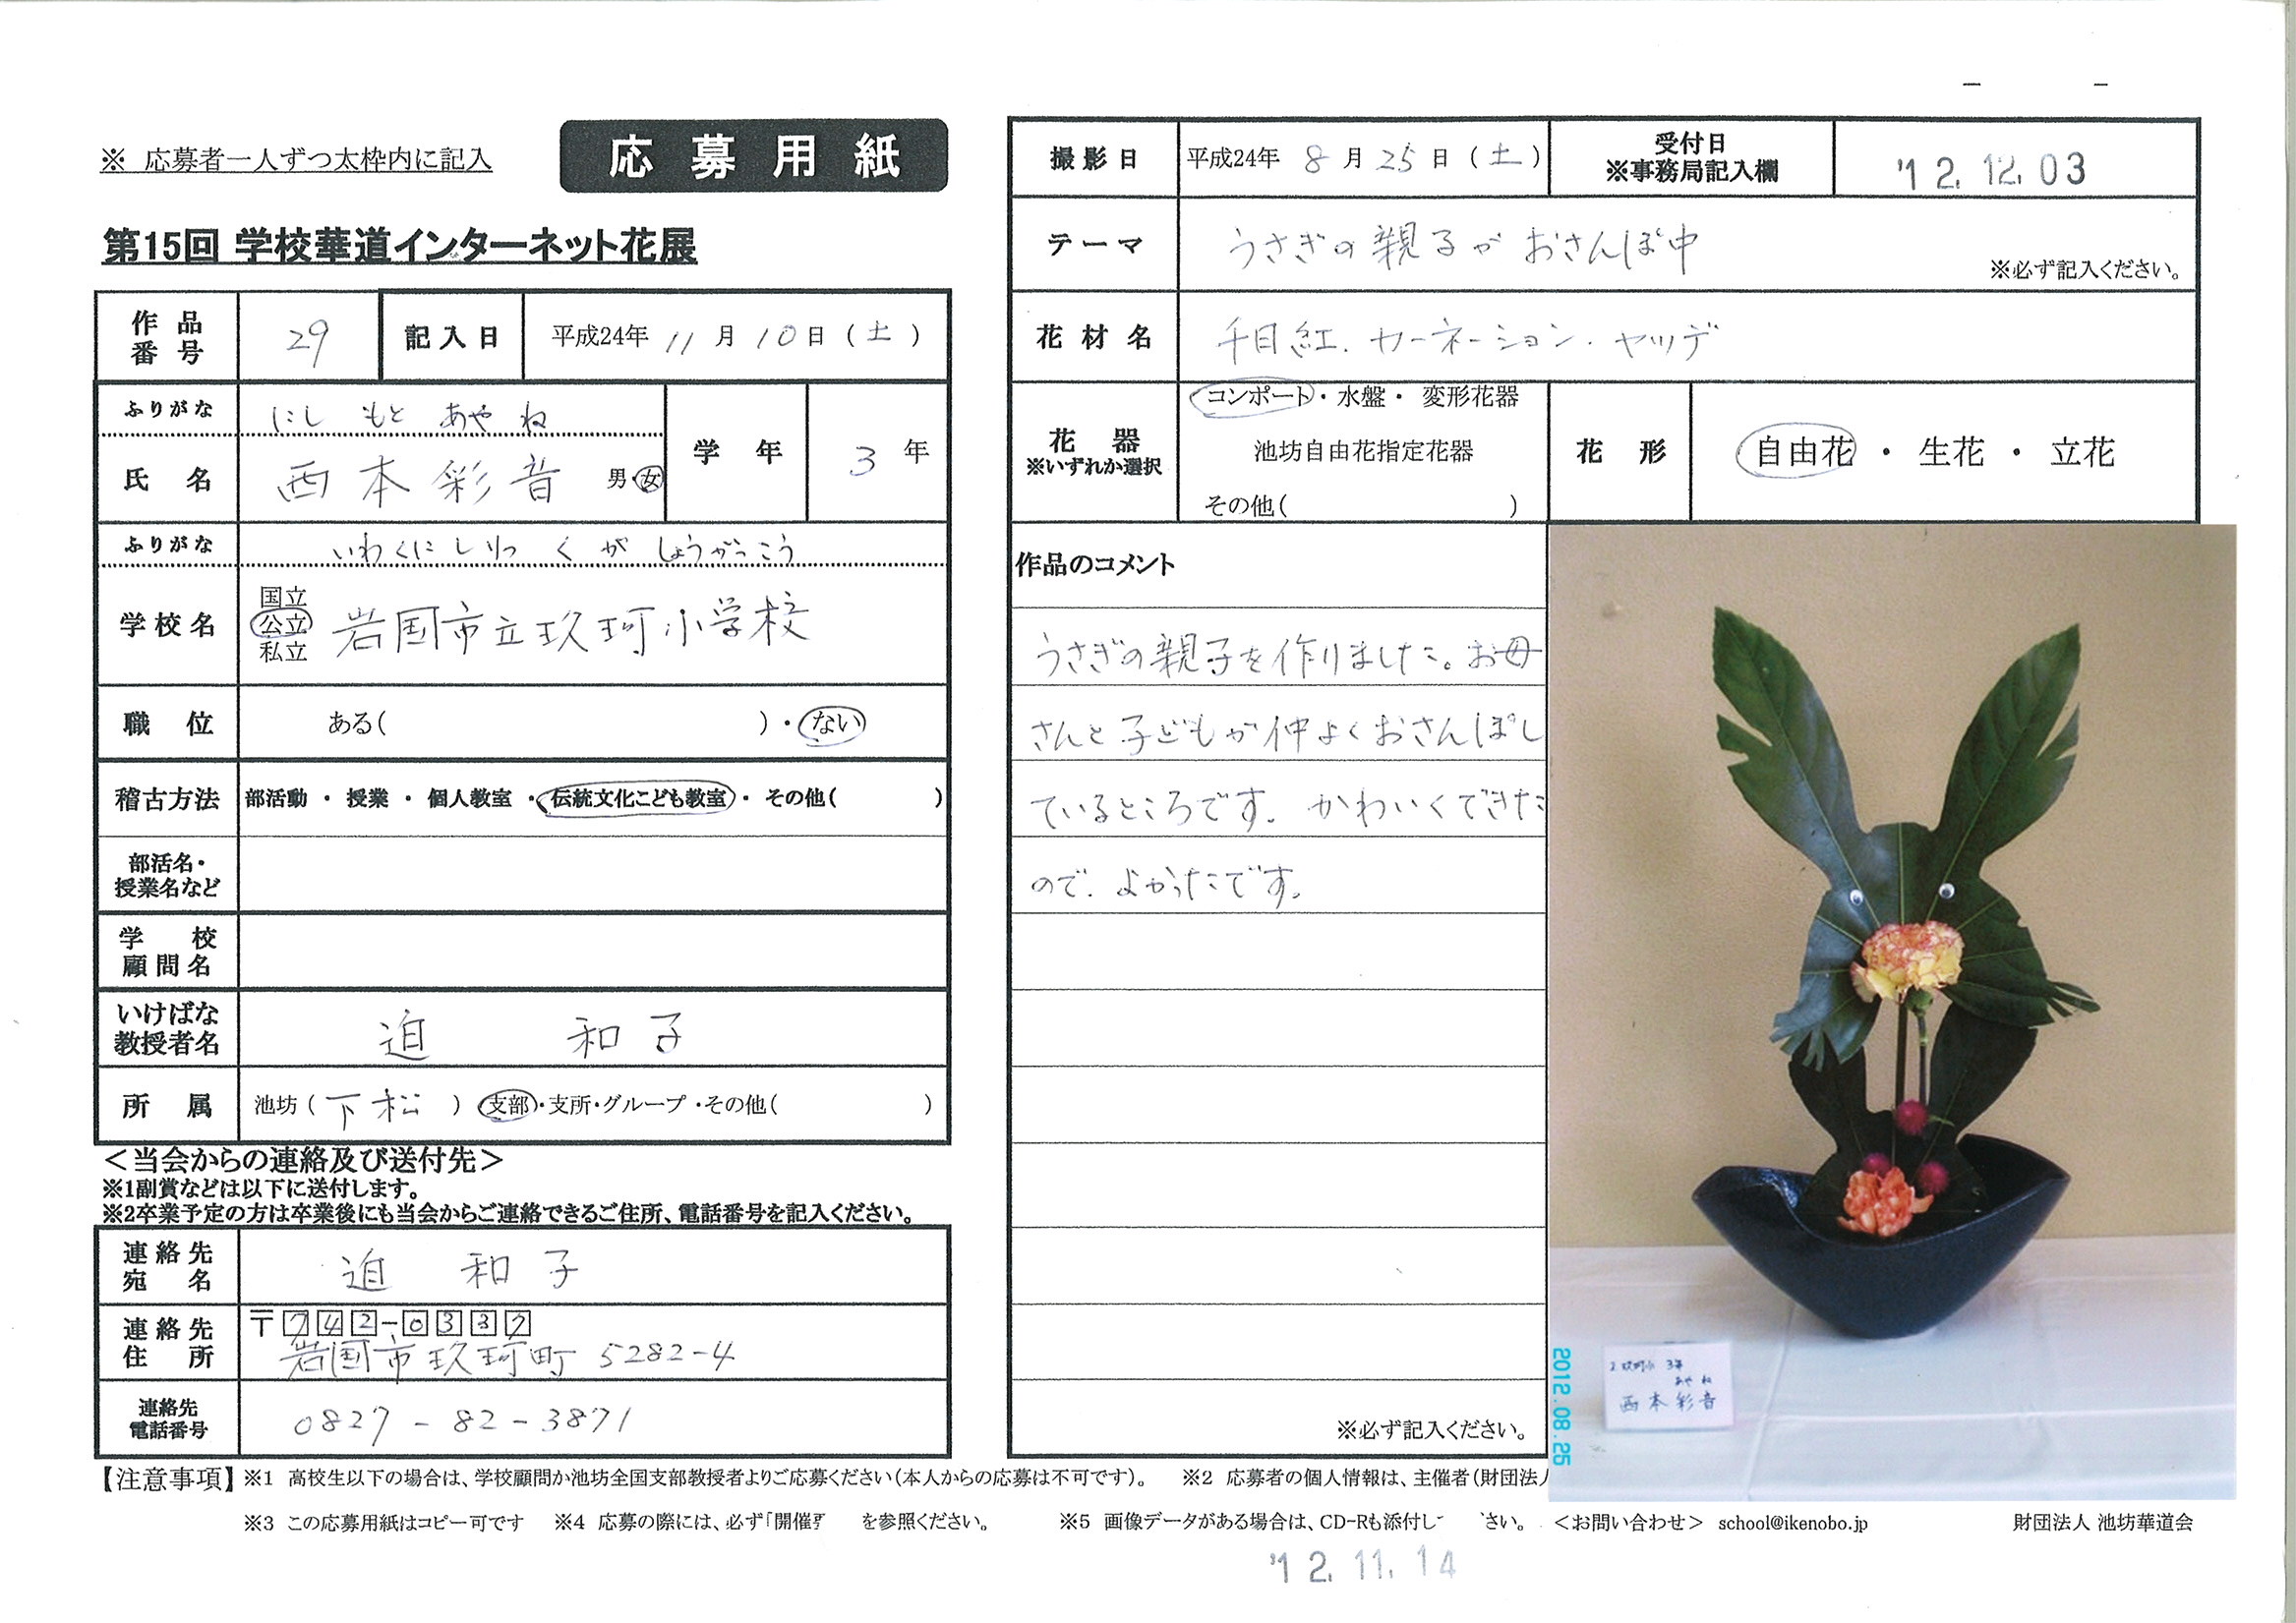 ※ 応募者一人ずつ太枠内に記入
応募用紙
第15回 学校華道インターネット花展
作品番号 29 記入日 平成24年 11月10日(土)
ふりがな にし もと あや ね
氏名 西本彩音 男・女 学年 3年
ふりがな いわくにしりつ くが しょうがっこう
学校名 国立 公立 私立 岩国市立玖珂小学校
職位 ある( )・ない
稽古方法 部活動 ・ 授業 ・ 個人教室 ・ 伝統文化こども教室 ・ その他( )
部活名・授業名など
学校顧問名
いけばな教授者名 迫 和子
所属 池坊(下松)支部・支所・グループ・その他( )
<当会からの連絡及び送付先>
※1副賞などは以下に送付します。
※2卒業予定の方は卒業後にも当会からご連絡できるご住所、電話番号を記入ください。
連絡先宛名 迫 和子
連絡先住所 〒742-0337
岩国市玖珂町 5282-4
連絡先電話番号 0827-82-3871
撮影日 平成24年 8月25日(土) 受付日 ※事務局記入欄 '12.12.03
テーマ うさぎの親子が おさんぽ中
※必ず記入ください。
花材名 千日紅.カーネーション.ヤツデ
花器 ※いずれか選択 コンポート・水盤・変形花器
池坊自由花指定花器
その他( )
花形 自由花 ・ 生花 ・ 立花
作品のコメント
うさぎの親子を作りました。お母
さんと子どもが仲よくおさんぽし
ているところです。かわいくできた
ので、よかったです。
※必ず記入ください。
2玖珂小 3年
あや ね
西本彩音
2012.08.25
【注意事項】※1 高校生以下の場合は、学校顧問か池坊全国支部教授者よりご応募ください(本人からの応募は不可です)。 ※2 応募者の個人情報は、主催者(財団法人
※3 この応募用紙はコピー可です ※4 応募の際には、必ず「開催 を参照ください。 ※5 画像データがある場合は、CD-Rも添付し さい。 <お問い合わせ> school@ikenobo.jp 財団法人 池坊華道会
'12.11.14